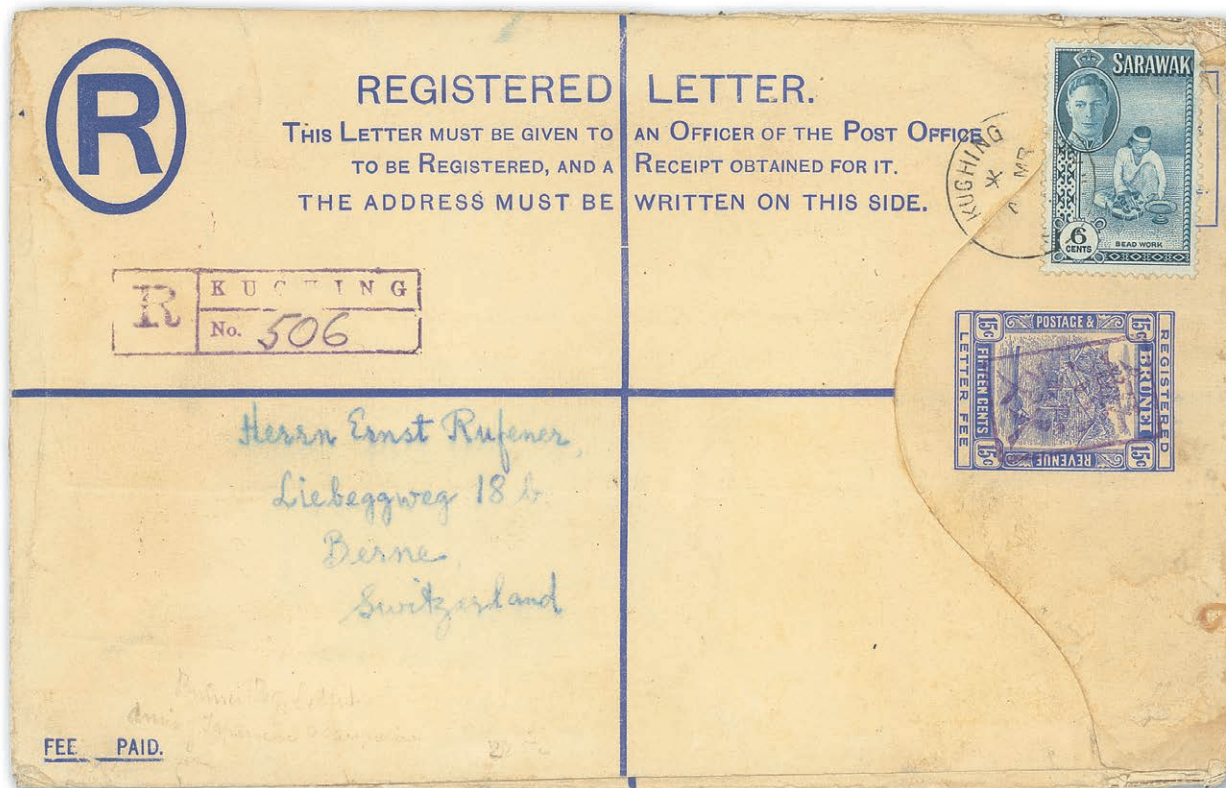 R
REGISTERED LETTER.
THIS LETTER MUST BE GIVEN TO AN OFFICER OF THE POST OFFICE
TO BE REGISTERED, AND A RECEIPT OBTAINED FOR IT.
THE ADDRESS MUST BE WRITTEN ON THIS SIDE.
SARAWAK
6
CENTS
BEAD WORK
KUCHING
MR
R
KUCHING
No. 506
POSTAGE &
REVENUE
15c
15c
15c
15c
FIFTEEN CENTS
BRUNEI
REGISTERED
LETTER FEE
Herrn Ernst Rufener,
Liebeggweg 18 b.
Berne
Switzerland
FEE PAID.